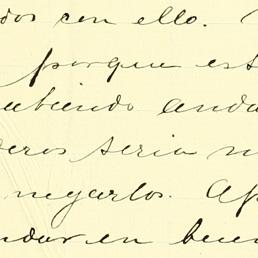 dos con ello.
porque est
abiendo anda
deros seria m
negarlos. Ap
ndar en buen